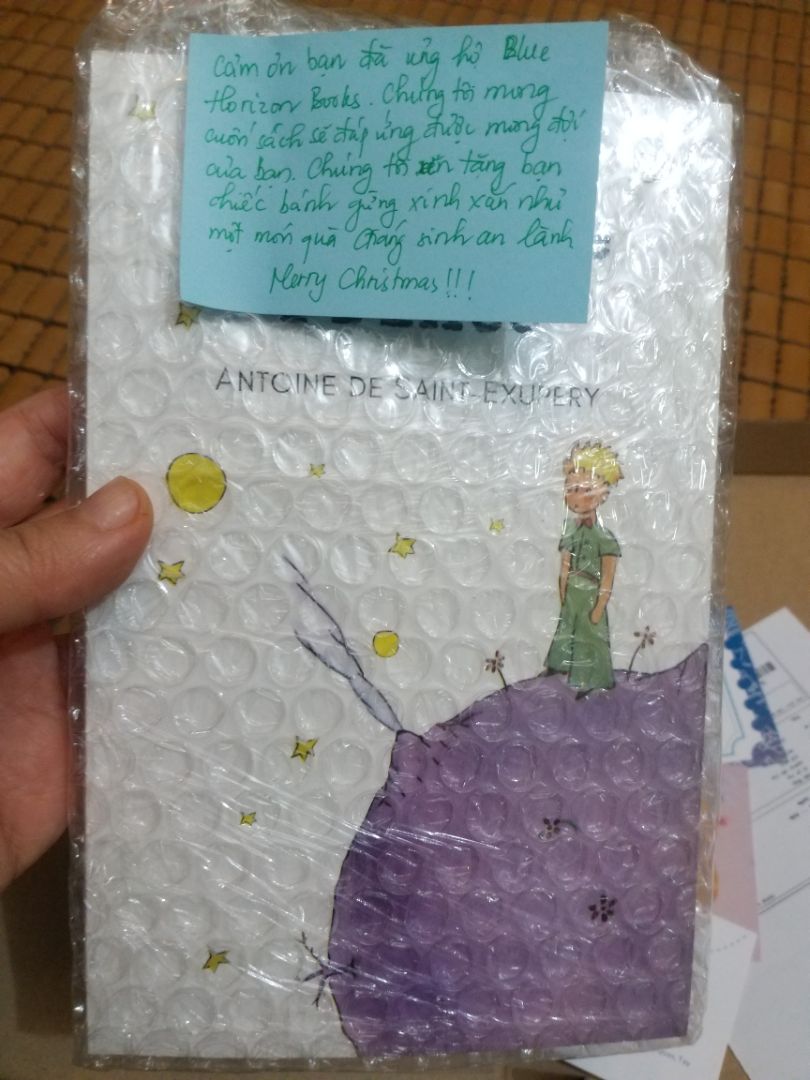 Cảm ơn bạn đã ủng hộ Blue
Horizon Books. Chúng tôi mong
cuốn sách sẽ đáp ứng được mong đợi
của bạn. Chúng tôi xin tặng bạn
chiếc bánh gừng xinh xắn như
một món quà Giáng sinh an lành
Merry Christmas!!!
ANTOINE DE SAINT-EXUPERY